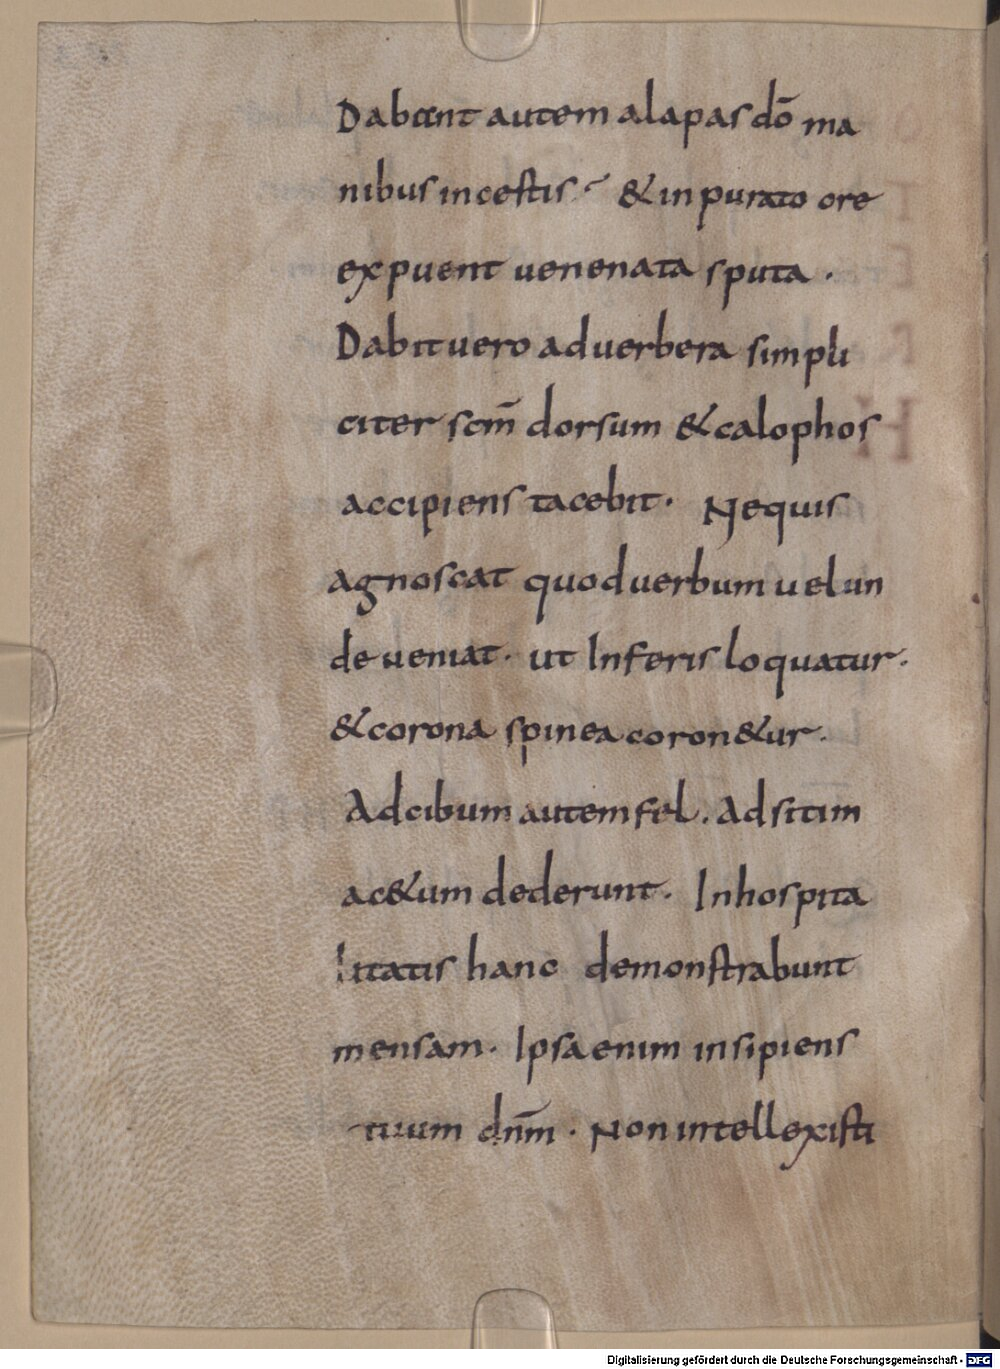 Dabunt autem alapas dō ma
nibus incestis & inpurato ore
expuent uenenata sputa .
Dabit uero ad uerbera simpli
citer scm̄ dorsum & calophos
accipiens tacebit . Nequis
agnoscat quod uerbum uel un
de ueniat . ut Inferis loquatur .
& corona spinea coron&ur .
Ad cibum autem fel . Ad sitim
ac&um dederunt . Inhospita
litatis hanc demonstrabunt
mensam . Ipsa enim insipiens
tuum dnm̄ . Non intellexisti
Digitalisierung gefördert durch die Deutsche Forschungsgemeinschaft - DFG